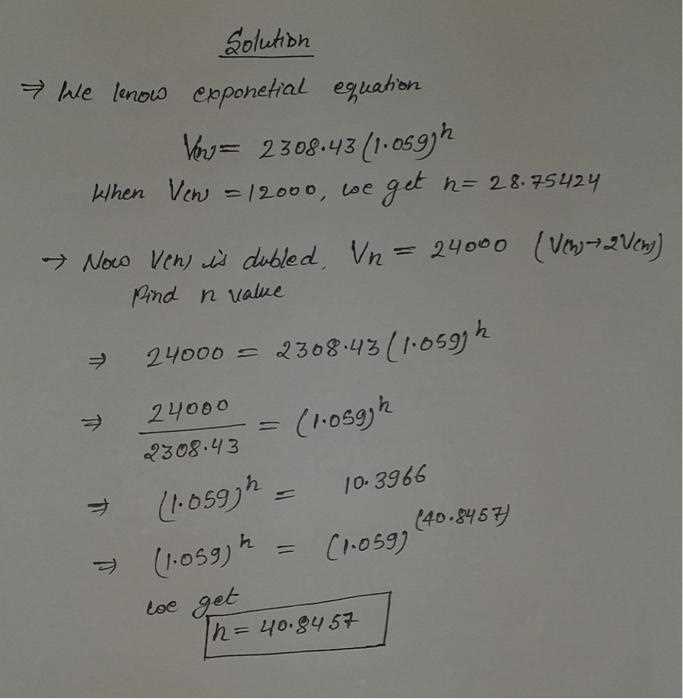 Solution
⇒ We know exponetial equation
V(n) = 2308.43 (1.059)^n
When V(n) = 12000, we get n = 28.75424
→ Now V(n) is dubled, Vn = 24000 (V(n)→2V(n))
Find n value
⇒ 24000 = 2308.43 (1.059)^n
⇒ 24000/2308.43 = (1.059)^n
⇒ (1.059)^n = 10.3966
⇒ (1.059)^n = (1.059)^(40.8457)
we get
n = 40.8457